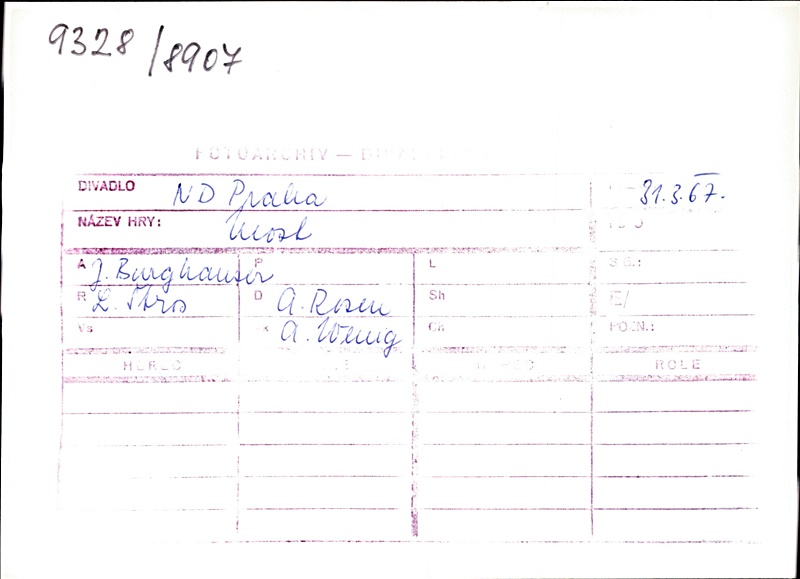 9328/8907
FOTOARCHIV —
DIVADLO ND Praha 31.3.67.
NÁZEV HRY: Most
A J. Burghauser P L
R L. Štros D A. Rosen Sh E/
Vs K A. Wenig Ch POZN.:
HEREC ROLE